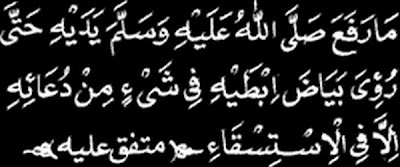 مَا رَفَعَ صَلَّى اللهُ عَلَيْهِ وَسَلَّمَ يَدَيْهِ حَتَّى
رُؤِىَ بَيَاضَ اِبْطَيْهِ فِى شَىْءٍ مِنْ دُعَائِهِ
اِلَّا فِى الْاِسْتِسْقَاءِ (متفق عليه)